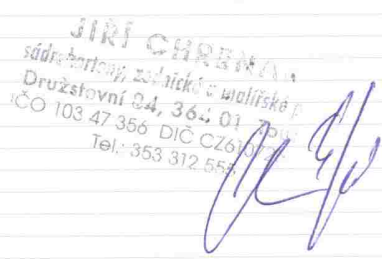 JIŘÍ
sádrokartony, zednické a malířské
Družstovní 24, 364 01
IČO 103 47 356 DIČ
Tel.: 353 312 555